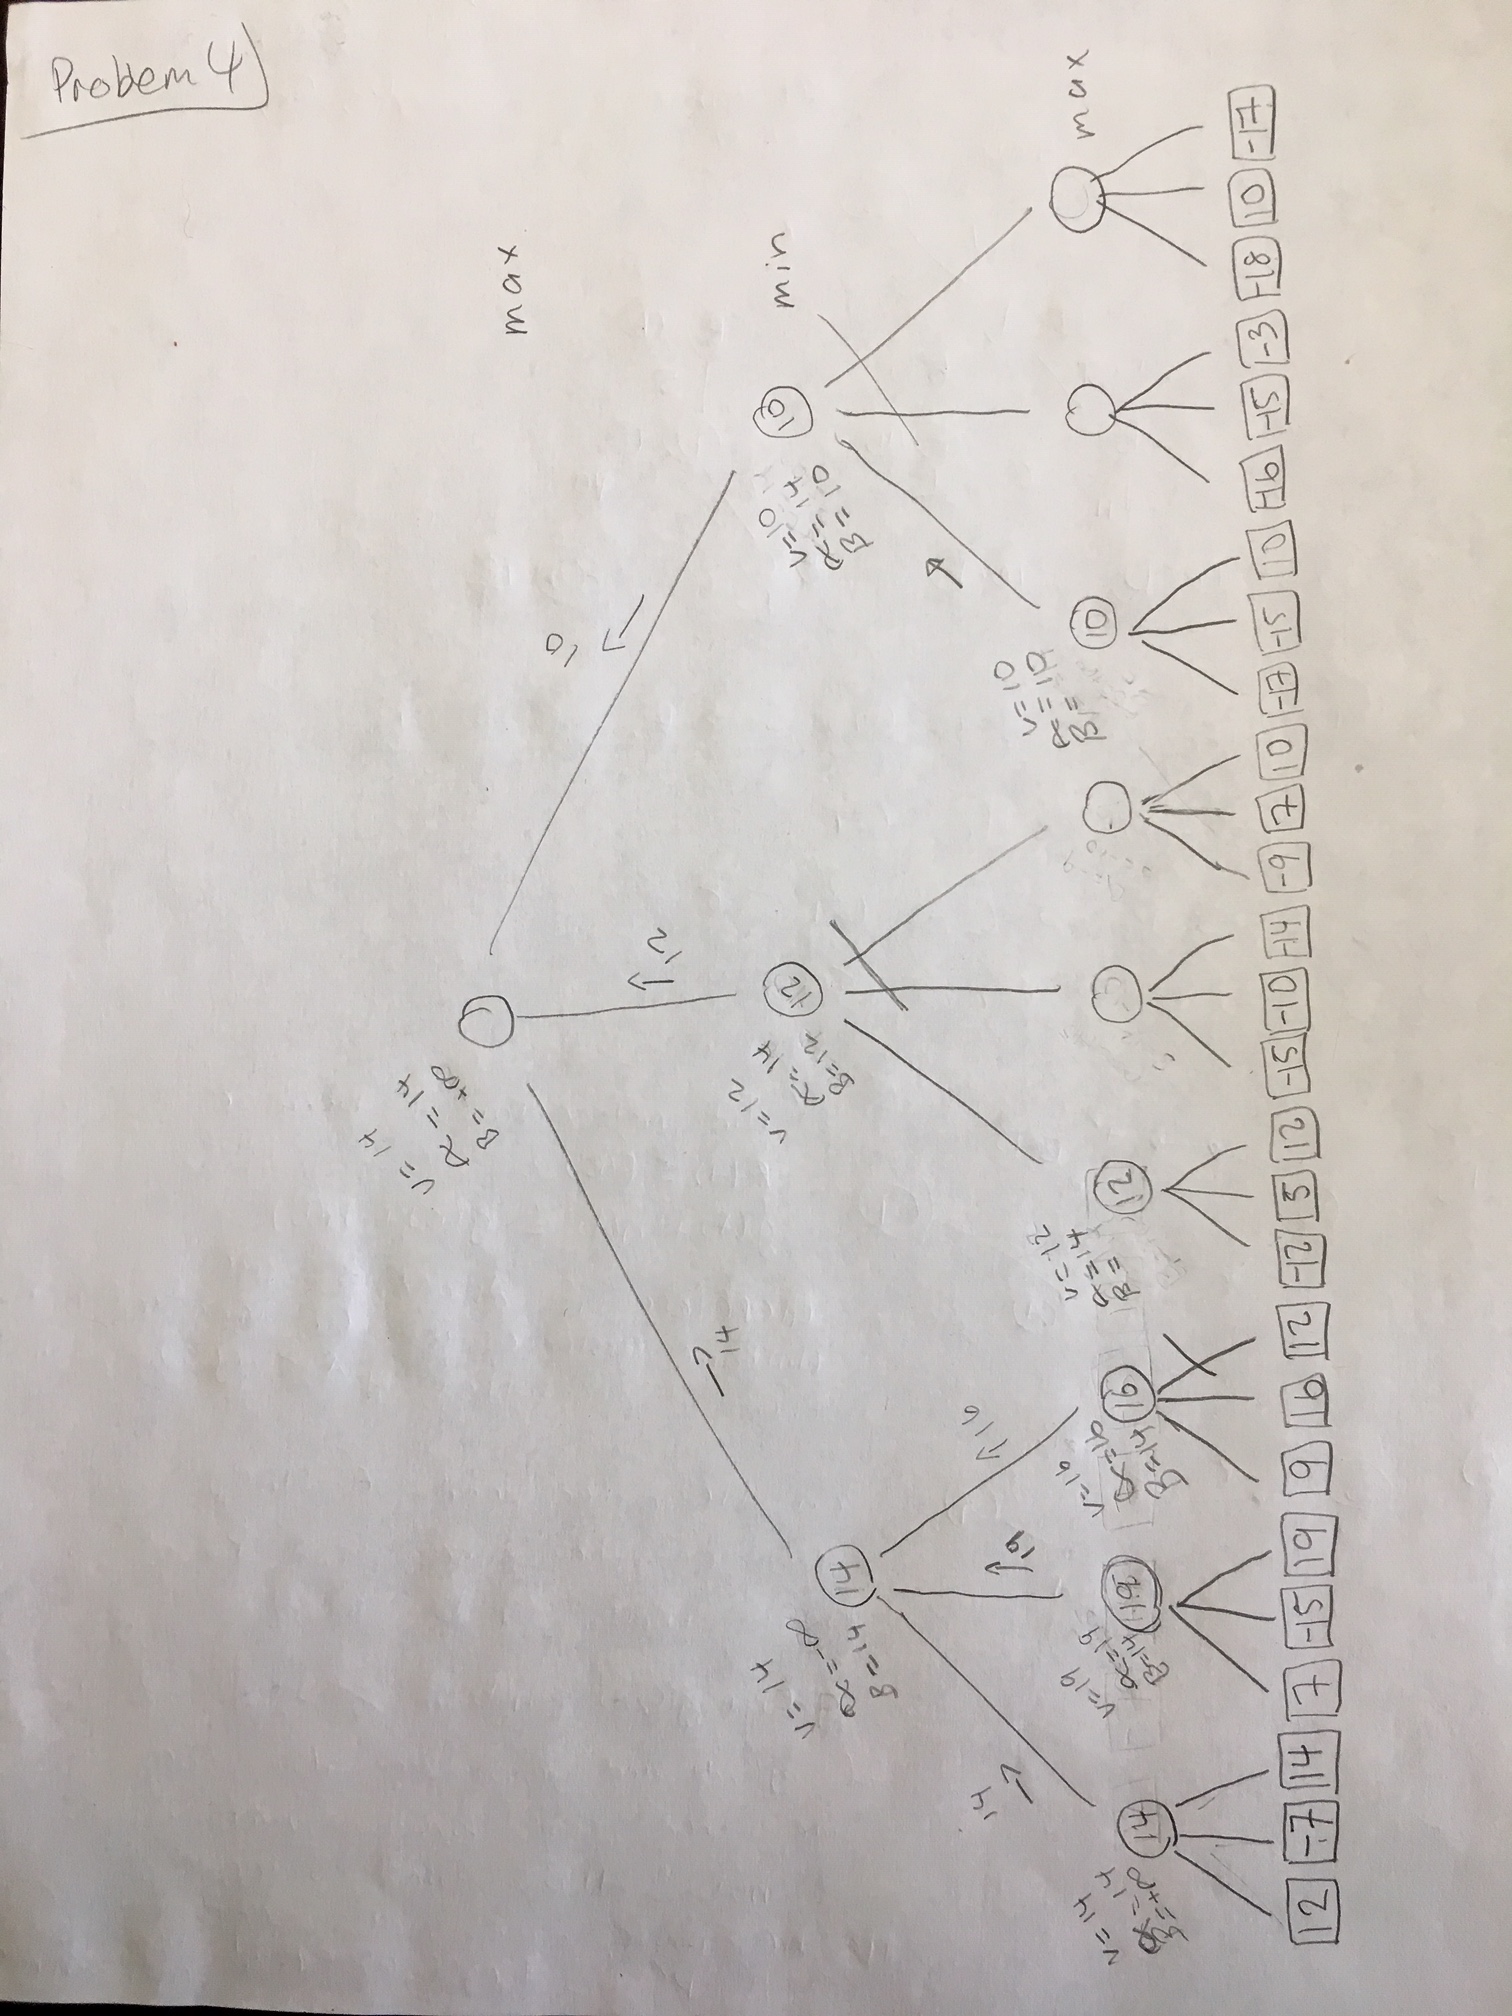 Problem 4
max
v=14
α=14
β=+∞
14
12
10
min
v=14
α=-∞
β=14
14
v=12
α=14
β=12
12
v=10
α=14
β=10
10
14
19
16
max
v=14
α=14
β=+∞
14
v=19
α=19
β=14
19
v=16
α=16
β=14
16
v=12
α=14
β=
12
v=10
α=10
β=
10
12 -7 14 7 -15 19 9 16 12 -12 5 12 -15 -10 -14 -9 7 10 -7 -15 10 -16 -15 -3 -18 10 -17